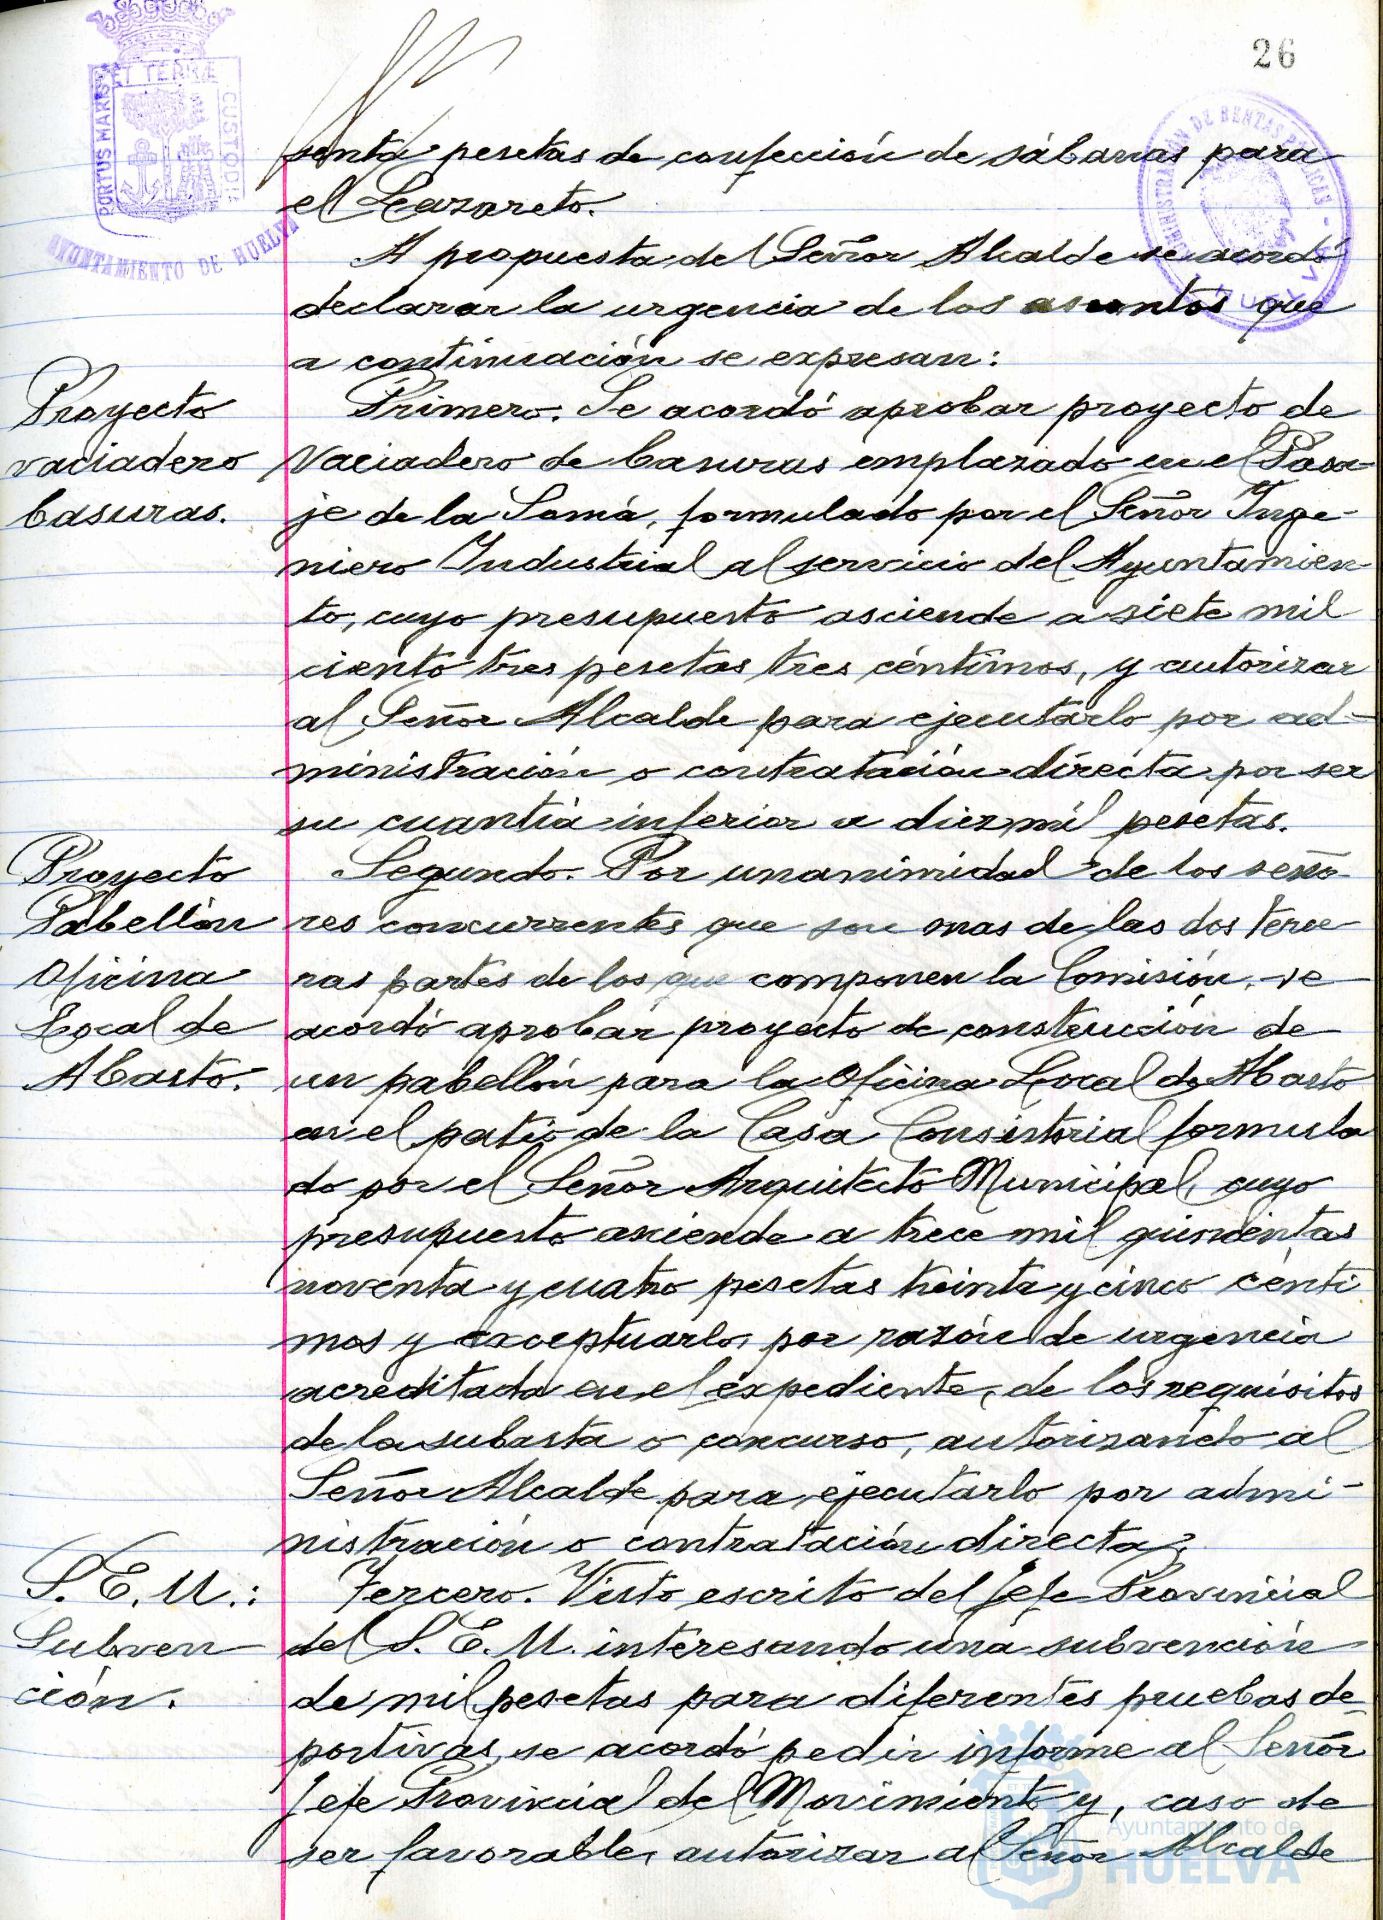 26
PORTUS MARIS ET TERRÆ CUSTODIA
AYUNTAMIENTO DE HUELVA
ADMINISTRACIÓN DE RENTAS PUBLICAS - HUELVA
senta pesetas de confección de sábanas para
el Lazareto.
A propuesta del Señor Alcalde se acordó
declarar la urgencia de los asuntos que
a continuación se expresan:
Proyecto
vaciadero
basuras.
Primero. Se acordó aprobar proyecto de
Vaciadero de basuras emplazado en el Pasa-
je de la Somá, formulado por el Señor Inge-
niero Industrial al servicio del Ayuntamien-
to, cuyo presupuesto asciende a siete mil
ciento tres pesetas tres céntimos, y autorizar
al Señor Alcalde para ejecutarlo por ad-
ministración o contratación directa por ser
su cuantía inferior a diez mil pesetas.
Proyecto
Pabellón
Oficina
Local de
Abasto.
Segundo. Por unanimidad de los seño-
res concurrentes que son mas de las dos terce-
ras partes de los que componen la Comisión, se
acordó aprobar proyecto de construcción de
un pabellón para la Oficina Local de Abasto
en el patio de la Casa Consistorial formula
do por el Señor Arquitecto Municipal, cuyo
presupuesto asciende a trece mil quinientas
noventa y cuatro pesetas treinta y cinco cénti
mos y exceptuarlo, por razón de urgencia
acreditada en el expediente, de los requisitos
de la subasta o concurso, autorizando al
Señor Alcalde para ejecutarlo por admi-
nistración o contratación directa.
S. E. U.:
Subven
ción.
Tercero. Visto escrito del Jefe Provincial
del S. E. U. interesando una subvención
de mil pesetas para diferentes pruebas de-
portivas, se acordó pedir informe al Señor
Jefe Provincial del Movimiento y, caso de
ser favorable, autorizar al Señor Alcalde
Ayuntamiento de
HUELVA